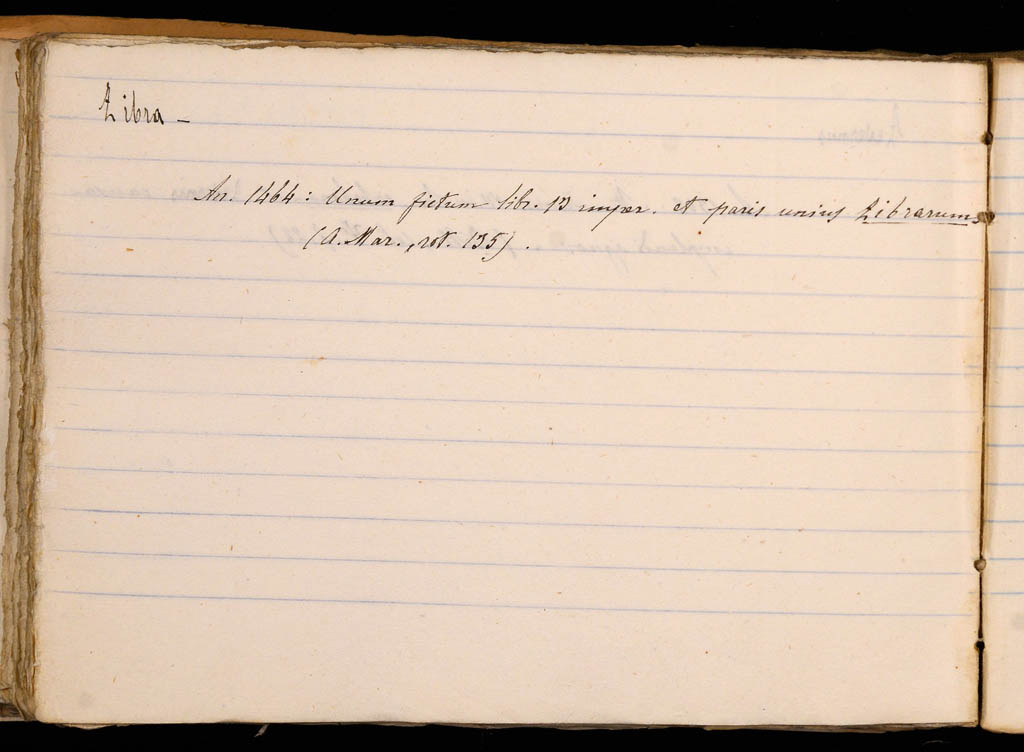 Libra -
An. 1464: Unum fictum libr. 13 imper. et paris unius Librarum
(A. Mar., rot. 135).